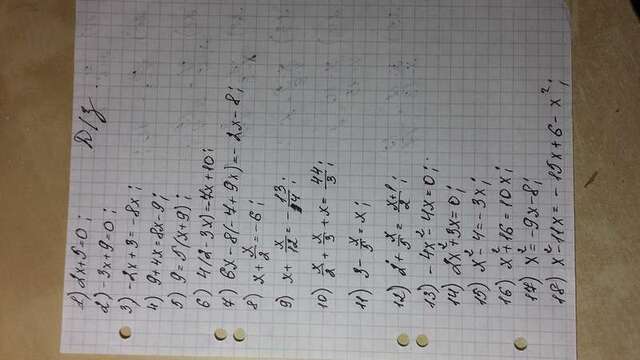 Д/з
1) 2x+5=0;
2) -3x+9=0;
3) -2x+3=-8x;
4) 9+4x=8x-9;
5) 9=5(x+9);
6) 4(2-3x)=-7x+10;
7) 6x-8(-7+9x)=-2x-8;
8) x+x/2=-6;
9) x+x/12=-13/4;
10) x/2+x/3+x=44/3;
11) 3-x/5=x;
12) 2+x/5=x+1/2;
13) -4x²-4x=0;
14) 2x²+3x=0;
15) x²-4=-3x;
16) x²+16=10x;
17) x²=-9x-8;
18) x²-11x=-15x+6-x²;